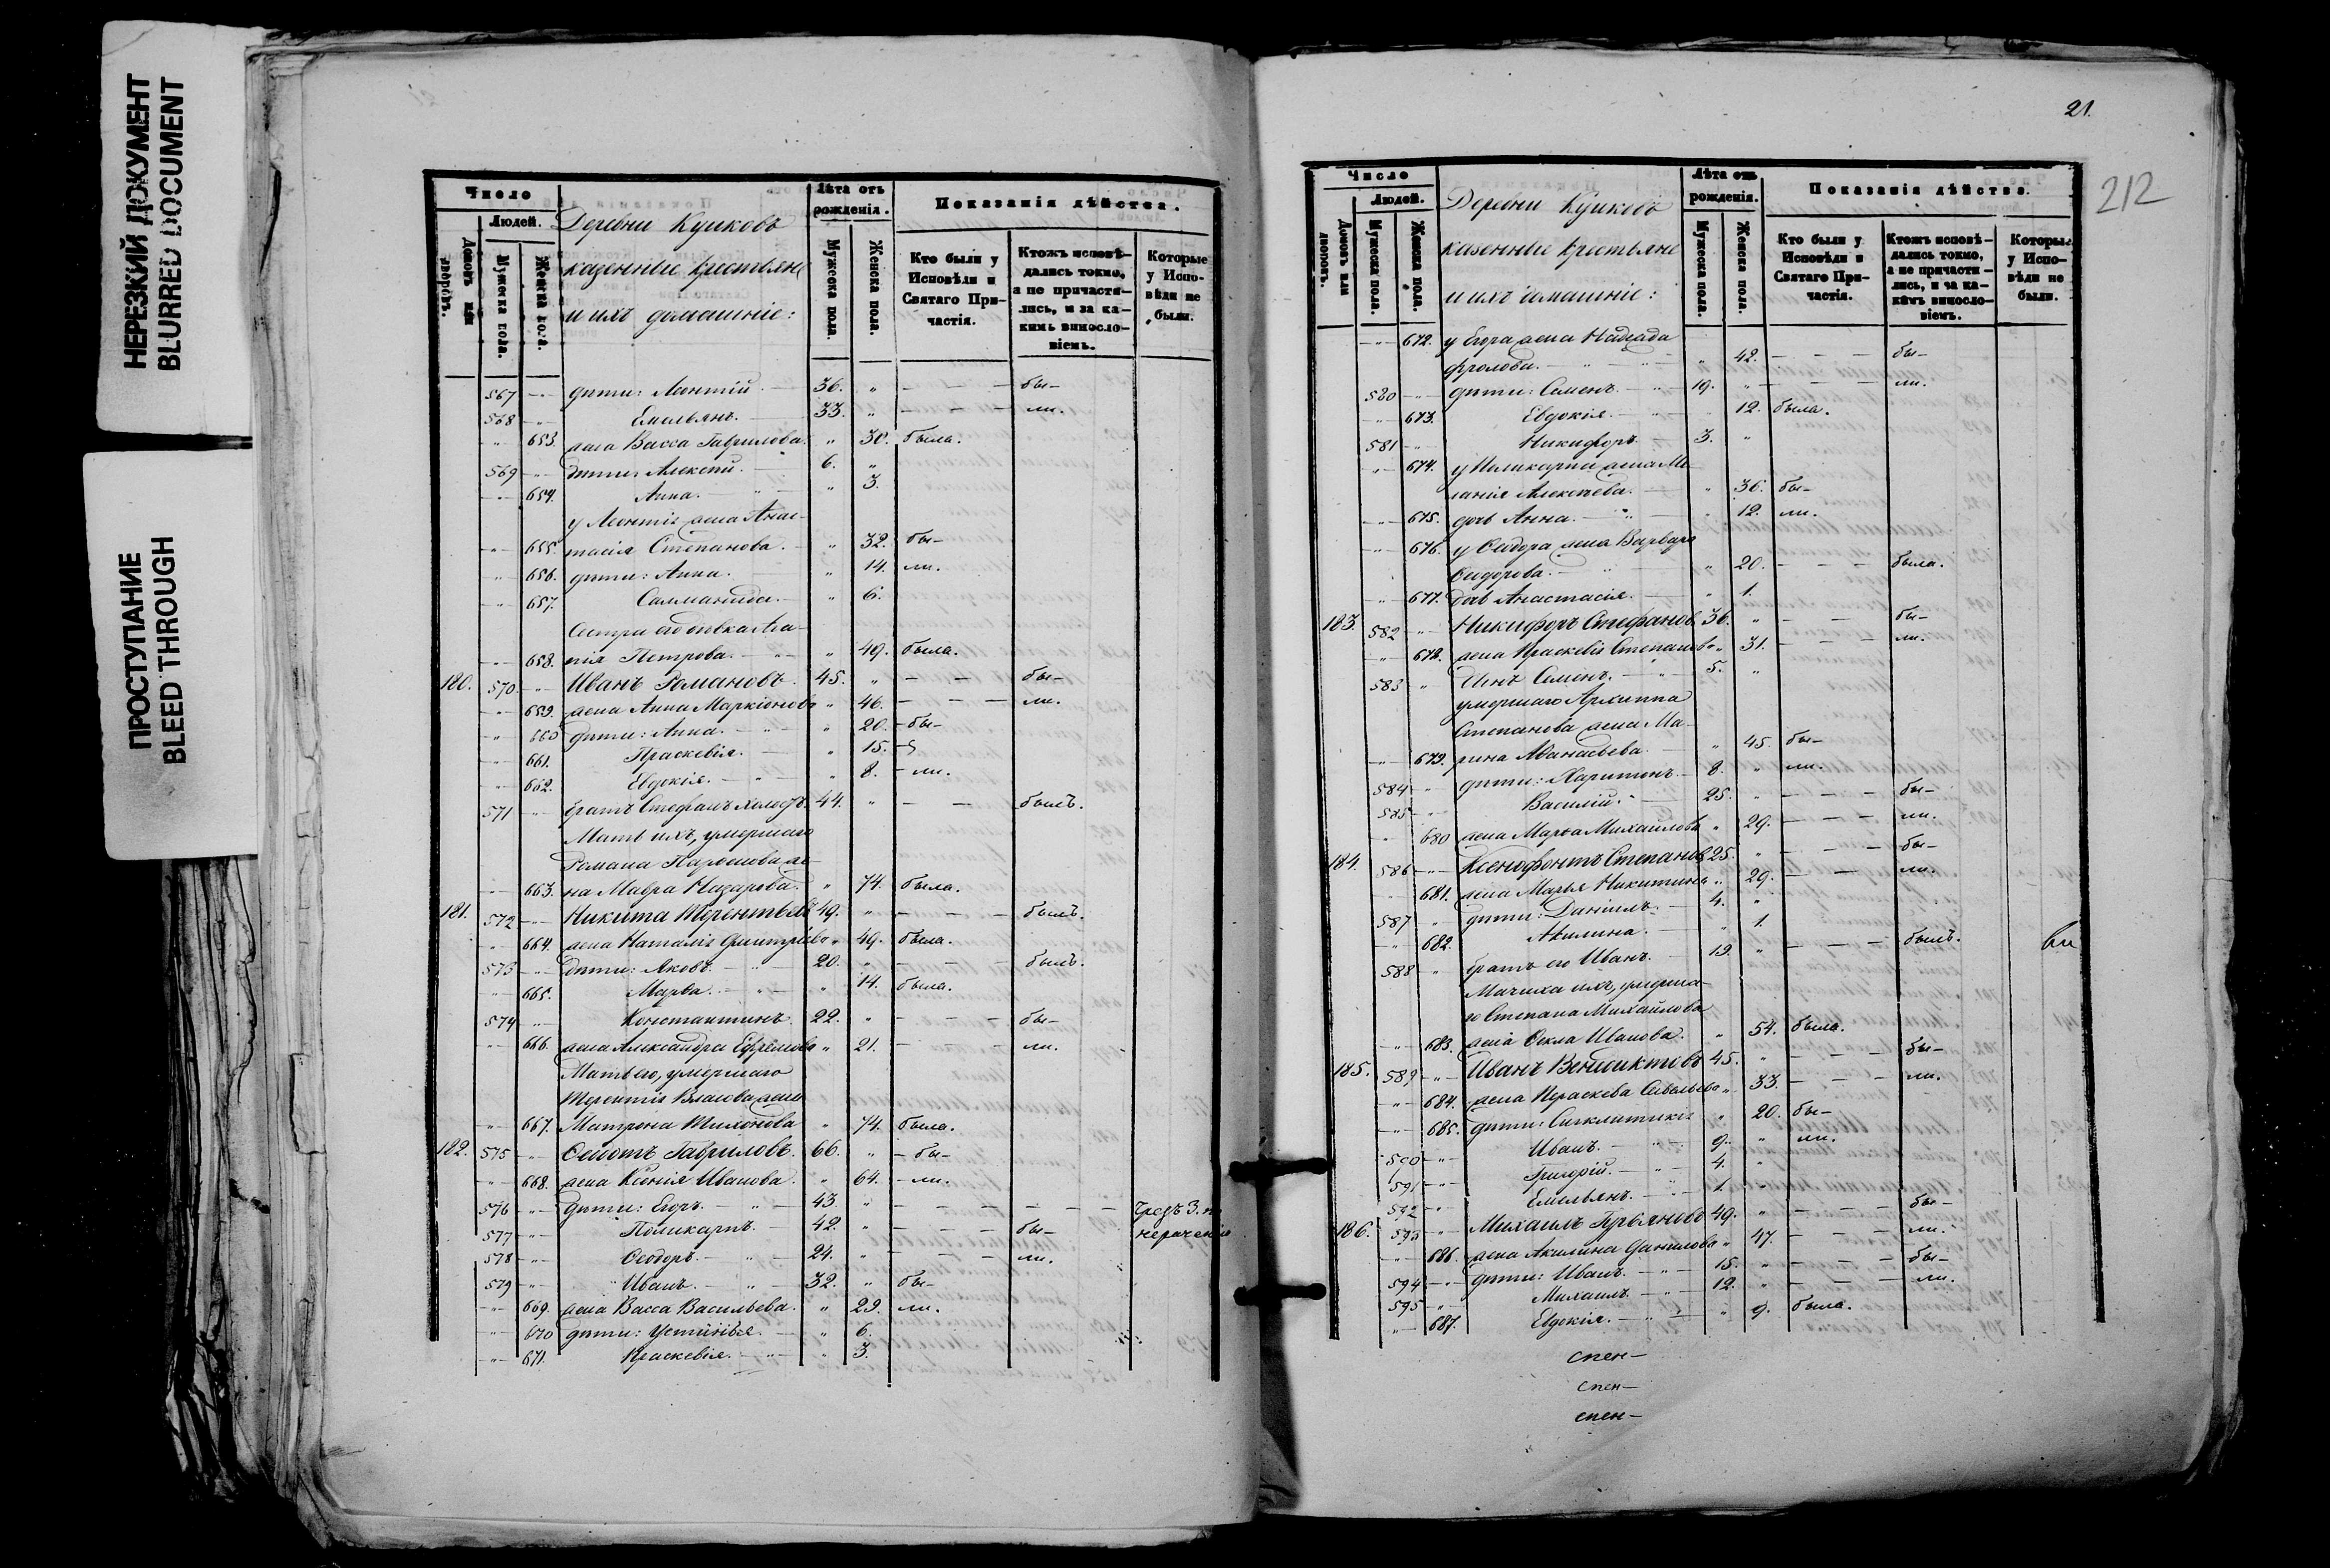 НЕРЕЗКИЙ ДОКУМЕНТ
BLURRED DOCUMENT
ПРОСТУПАНИЕ
BLEED THROUGH
Число
Людей.
Домовъ или дворовъ.
Мужеска пола.
Женска пола.
Деревни Кушковъ
казенные крестьяне
и ихъ домашніе:
Лѣта отъ рожденія.
Мужеска пола.
Женска пола.
Показанія дѣйства.
Кто были у Исповѣди и Святаго Причастія.
Ктожъ исповѣдались токмо, а не причастились, и за какимъ винословіемъ.
Которые у Исповѣди не были.
567 дѣти: Леонтій. 36. " — — — бы-
568 Емельянъ. 33. " — — — ли.
653. жена Васса Гаврилова. " 30. была.
569 дѣти: Алексѣй. 6. "
654. Анна. " 3.
у Леонтія жена Анас-
655. тасія Степанова. " 32. бы-
656. дѣти: Анна. " 14. ли.
657. " 6.
Сестра его дѣвка Ага-
658. пія Петрова. " 49. была.
180. 570 Иванъ Романовъ. 45. " — — бы-
659. жена Анна Маркіонова " 46. — — — ли.
660 дѣти: Анна. " 20. бы-
661. Праскевія. " 15.
662. Евдокія. " 8. ли.
571 братъ Стефанъ холостъ. 44. " — — былъ.
Мать ихъ, умершаго
Романа же-
663. на Мавра Назарова. " 74. была.
181. 572 Никита Терентьевъ 49. " — — — былъ.
664. жена Наталія Дмитріева " 49. была.
573 дѣти: Яковъ. 20. " — — — былъ.
665. Марѳа. " 14. была.
574 Константинъ. 22. " — — — бы-
666. жена Александра Ефремова " 21. — — — ли.
Мать его, умершаго
Терентія Власова жена
667. Матрона Тихонова " 74. была.
182. 575 Ѳедотъ Гавриловъ. 66. " бы-
668. жена Ксенія Иванова. " 64. ли.
576 дѣти: Егоръ. 43. " — — — — — —
577 Поликарпъ. 42. " — — — бы- нераченіе
578 Ѳеодоръ. 24. " — — — ли.
579 Иванъ. 32. " бы-
669. жена Васса Васильева. " 29. ли.
670 дѣти: Устинья. " 6.
671. Праскевія. " 3.
21.
212
Число
Людей.
Домовъ или дворовъ.
Мужеска пола.
Женска пола.
Деревни Кушковъ
казенные крестьяне
и ихъ домашніе:
Лѣта отъ рожденія.
Мужеска пола.
Женска пола.
Показанія дѣйства.
Кто были у Исповѣди и Святаго Причастія.
Ктожъ исповѣдались токмо, а не причастились, и за какимъ винословіемъ.
Которые у Исповѣди не были.
672. у Егора жена Надежда
Фролова. " 42. — — — бы-
580 дѣти: Семенъ. 19. " — — — ли.
673. Евдокія. " 12. была.
581 Никифоръ. 3. "
674. у Поликарпа жена Ме-
ланія Алексѣева. " 36. бы-
675. дочь Анна. " 12. ли.
676. у Ѳеодора жена Варвара
Сидорова. " 20. — — — была.
677. дочь Анастасія. " 1.
183. 582 Никифоръ Стефановъ 36. " — — бы-
678. жена Праскевія Степанова " 31. — — — ли.
583 Сынъ Семенъ. 5. "
умершаго Архиппа
Степанова жена Ма-
679. рина Аѳанасьева. " 45. бы-
584 дѣти: Харитонъ. 8. " ли.
585 Василій. 25. " — — — бы-
680 жена Марѳа Михайлова " 29. — — — ли.
184. 586 Ксенофонтъ Степановъ 25. " — — — бы-
681. жена Марья Никитина " 29. — — — ли.
587 дѣти: Даніилъ. 4. "
682. Акилина. " 1.
588 братъ его Иванъ. 19. " — — — былъ.
Мачиха ихъ, умерша-
го Степана Михайлова
683. жена Ѳекла Иванова. " 54. была.
185. 589 Иванъ Венедиктовъ 45. " — — — бы-
684. жена Параскева Савельева " 33. — — — ли.
685. дѣти: Синклитикія " 20. бы-
590 Иванъ. 9. " ли.
591 Григорій. 4. "
592 Емельянъ. 1. "
186. 593 Михаилъ Гурьяновъ 49. " — — — бы-
686. жена Акилина Данилова " 47. — — — ли.
594 дѣти: Иванъ. 15. " — — — бы-
595 Михаилъ. 12. " — — — ли.
687. Евдокія. " 9. была.
спен-
спен-
спен-